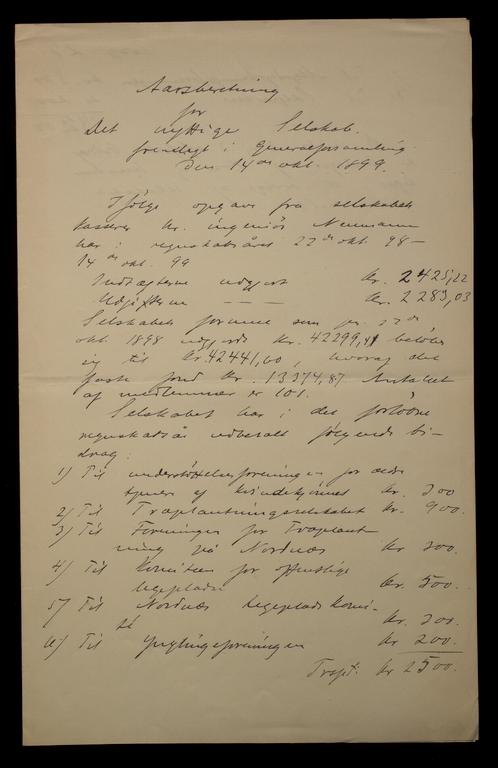 Aarsberetning
for
Det nyttige Selskab
fremlagt i generalforsamling
den 14de okt. 1899.
Ifølge opgave fra selskabets
kasserer hr. ingeniør Neumann
har i regnskabsåret 22de okt. 98 –
14de okt. 99
Indtægterne udgjort kr. 2425,22
Udgifterne – – – kr. 2283,03
Selskabets formue som pr. 22de
okt. 1898 udgjorde kr. 42299,41 beløber
sig til kr. 42441,60, hvoraf det
faste fond kr. 13374,87 Antallet
af medlemmer er 101.
Selskabet har i det forløbne
regnskabsår udbetalt følgende bi-
drag:
1) Til understøttelsesforeningen for ældre
tjenere af kvindekjønnet kr. 300
2) Til Træplantningsselskabet kr. 900.
3) Til Foreningen for Træplant
ning på Nordnæs kr 300.
4) Til Komiteen for offentlige
legepladse kr. 500.
5) Til Nordnæs legeplads komi-
té kr. 300.
6) Til Ynglingeforeningen kr 200.
Transp: kr 2500.